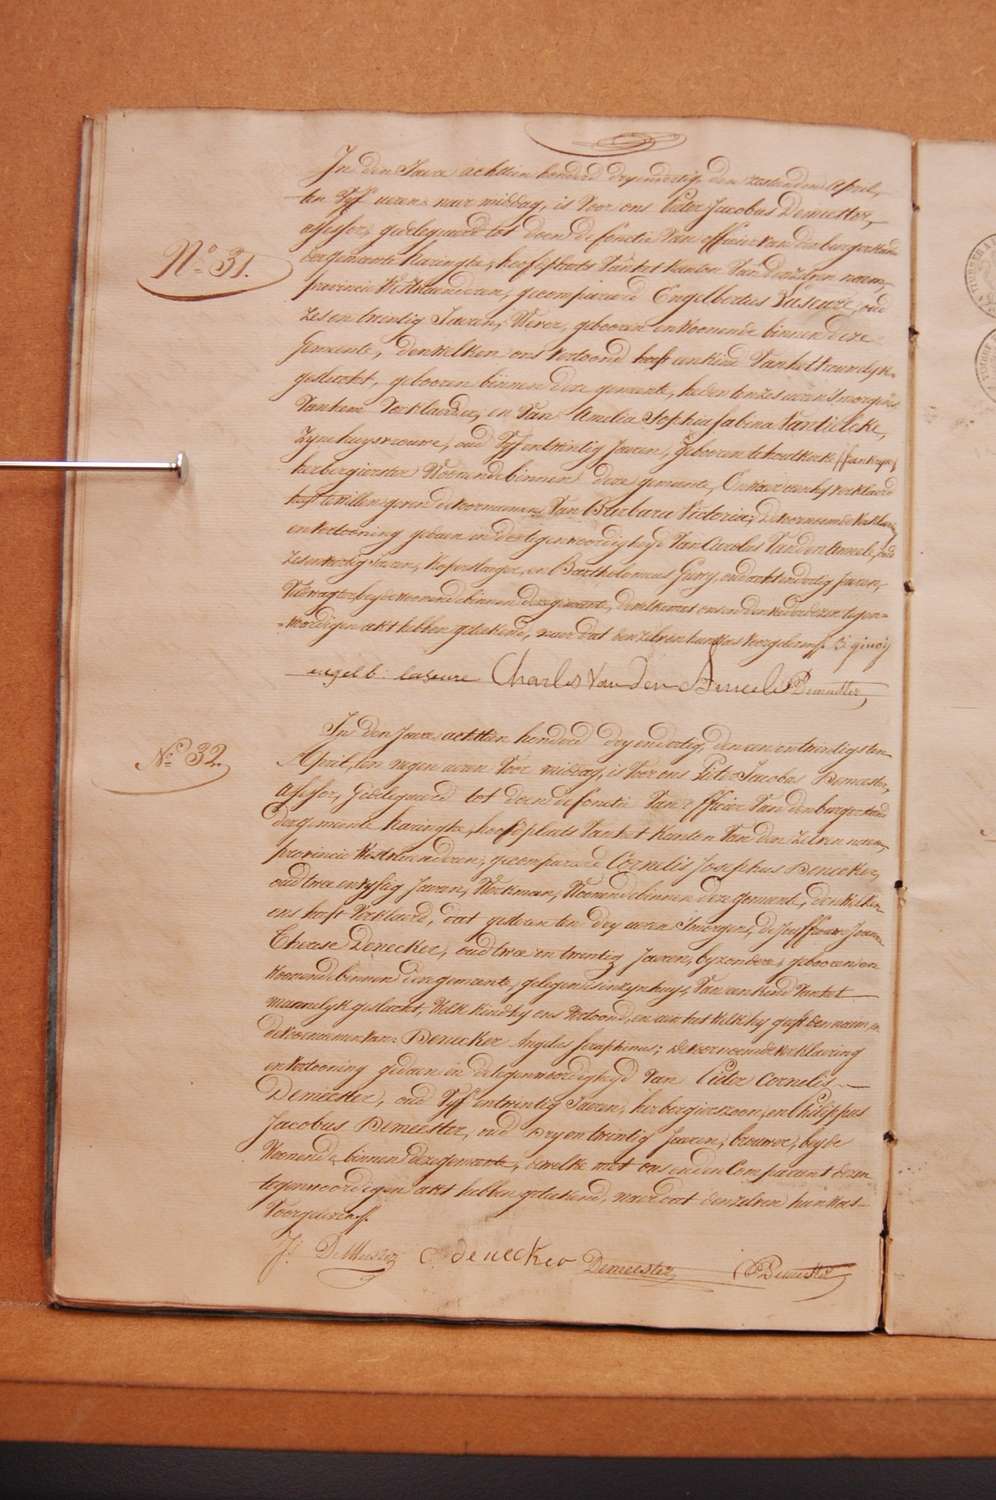 In den Jaere achttien honderd dry en dertig, den zestienden April,
ten vyf uren naer middag, is voor ons Pieter Jacobus Demeester,
assessor, gedelegueerd tot doen de functie van officier van den burgerstand
der gemeente Haringhe, hoofdplaets van het kanton van den zelven naem,
provincie Westvlaenderen, gecompareerd Engelbertus Laseure, oud
zes en twintig Jaeren, Wever, gebooren en woonende binnen deze
gemeente, den welken ons vertoond heeft een kind van het vrouwelyk
geslacht, gebooren binnen deze gemeente, heden ten zes uren 's morgens
van hem verklaerder, en van Amelia Sophia Sabina Vantielcke,
zyne huysvrouwe, oud vyf en twintig Jaeren, gebooren te houtkerke (frankryk)
herbergierster woonende binnen deze gemeente, en waer aen hy verklaerd
te willen geven de voornaemen van Barbara Victoria; de voornoemde verklaering
en vertooning gedaen in de tegenwoordigheyd van Carolus Vanden Ameele, oud
zes en veertig Jaeren, koperslager, en Bartholomeus Gury, oud acht en dertig Jaeren,
veldwagter, beyde woonende binnen deze gemeente, dewelke met ons en den vader dezen tegen-
woordigen akt hebben geteekend, naer dat den zelven hun was voorgelezen. B: geury
engelb: laseure Charles Van den Ameele PDemeester
N.° 31.
N.° 32.
In den Jaere achttien honderd dry en dertig, den een en twintigsten
April, ten negen uren voor middag, is voor ons Pieter Jacobus Demeester,
assessor, gedelegueerd tot doen de functie van officier van den burgerstand
der gemeente haringhe, hoofdplaets van het kanton van den zelven naem,
provincie Westvlaenderen, gecompareerd Cornelis Josephus Denecker,
oud twee en vyftig Jaeren, Werkman, Woonende binnen deze gemeente, den welken
ons heeft verklaerd, dat gisteren ten dry uren 's morgens, de Jouffrouw Joanna
Therese Denecker, oud twee en twintig Jaeren, byzondere, gebooren en
woonende binnen deze gemeente, gelegen is in zyn huys, van een kind van het
mannelyk geslacht, welk kind hy ons vertoond, en aen het welk hy geeft den naem en
de voornaemen van Denecker Angelus Seraphinus; de voornoemde verklaering
en vertooning gedaen in de tegenwoordigheyd van Pieter Cornelis
Demeester, oud vyf en twintig Jaeren, herbergier zoon, en Philippus
Jacobus Demeester, oud dry en twintig Jaeren, brouwer, beyde
woonende binnen deze gemeente, dewelke met ons en den Comparant dezen
tegenwoordigen akt hebben geteekend, naer dat den zelven hun was
voorgelezen.
Denecker Demeester PDemeester